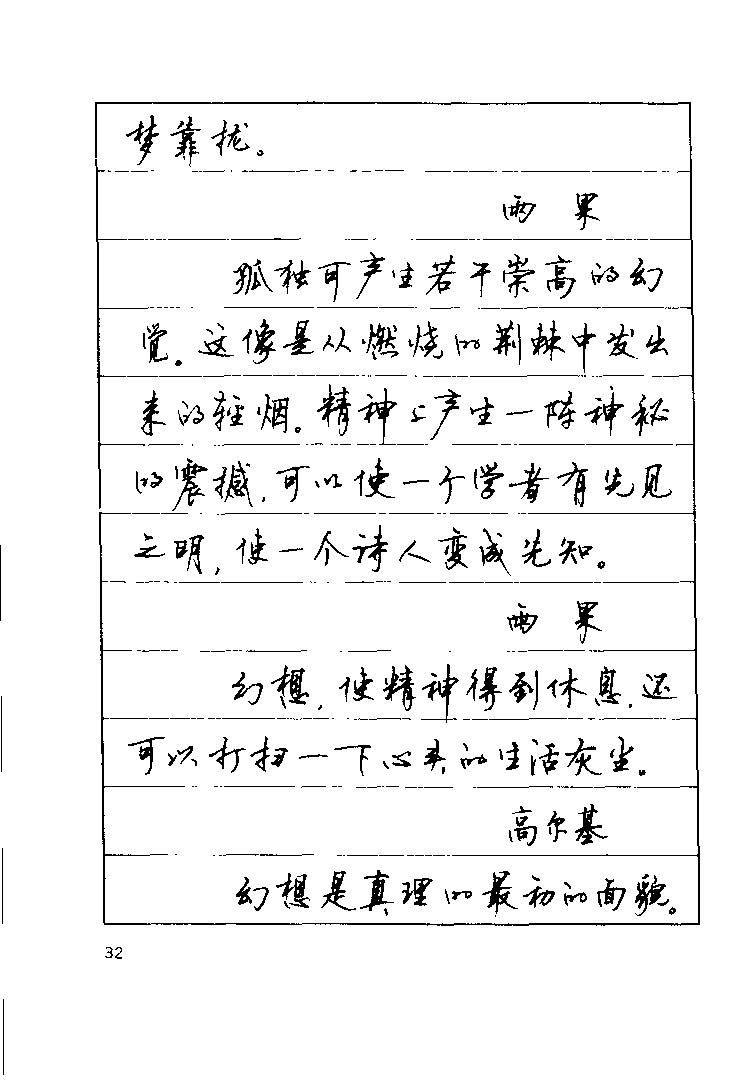 梦靠拢。
雨果
孤独可产生若干崇高的幻
觉。这像是从燃烧的荆棘中发出
来的轻烟。精神上产生一阵神秘
的震撼,可以使一个学者有先见
之明,使一个诗人变成先知。
雨果
幻想,使精神得到休息,还
可以打扫一下心头的生活灰尘。
高尔基
幻想是真理的最初的面貌。
32